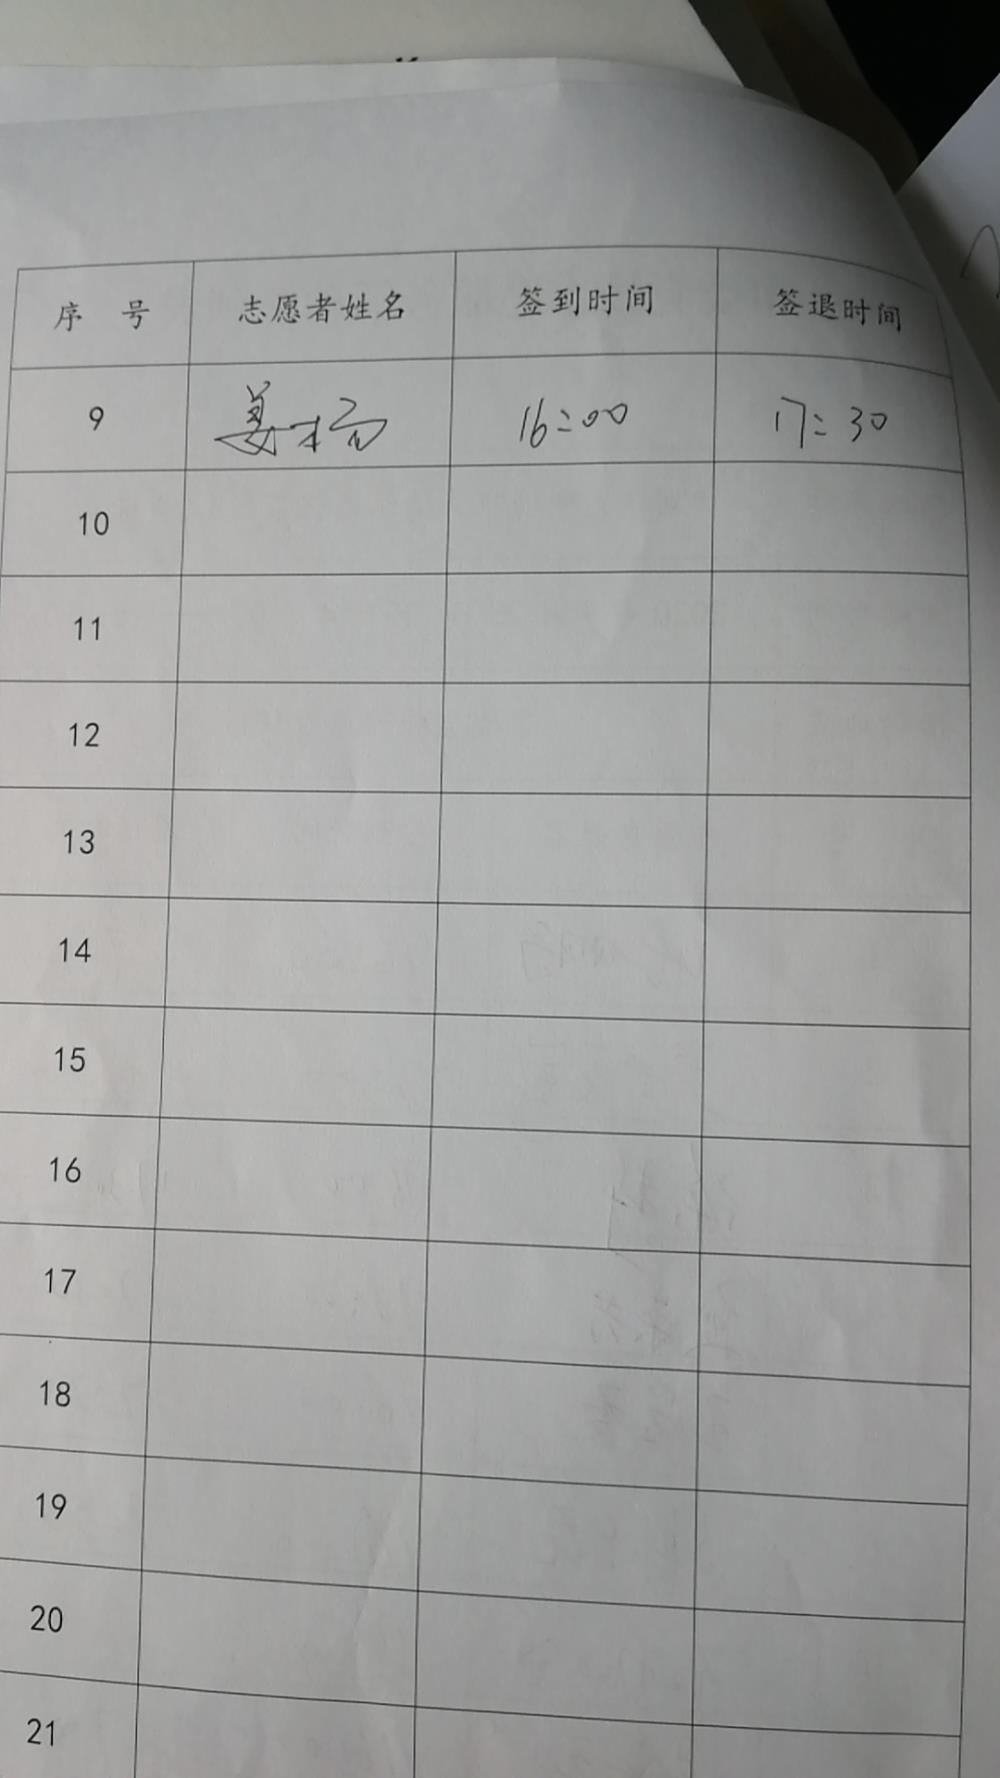 序 号 志愿者姓名 签到时间 签退时间
9 姜杨 16:00 17:30
10
11
12
13
14
15
16
17
18
19
20
21